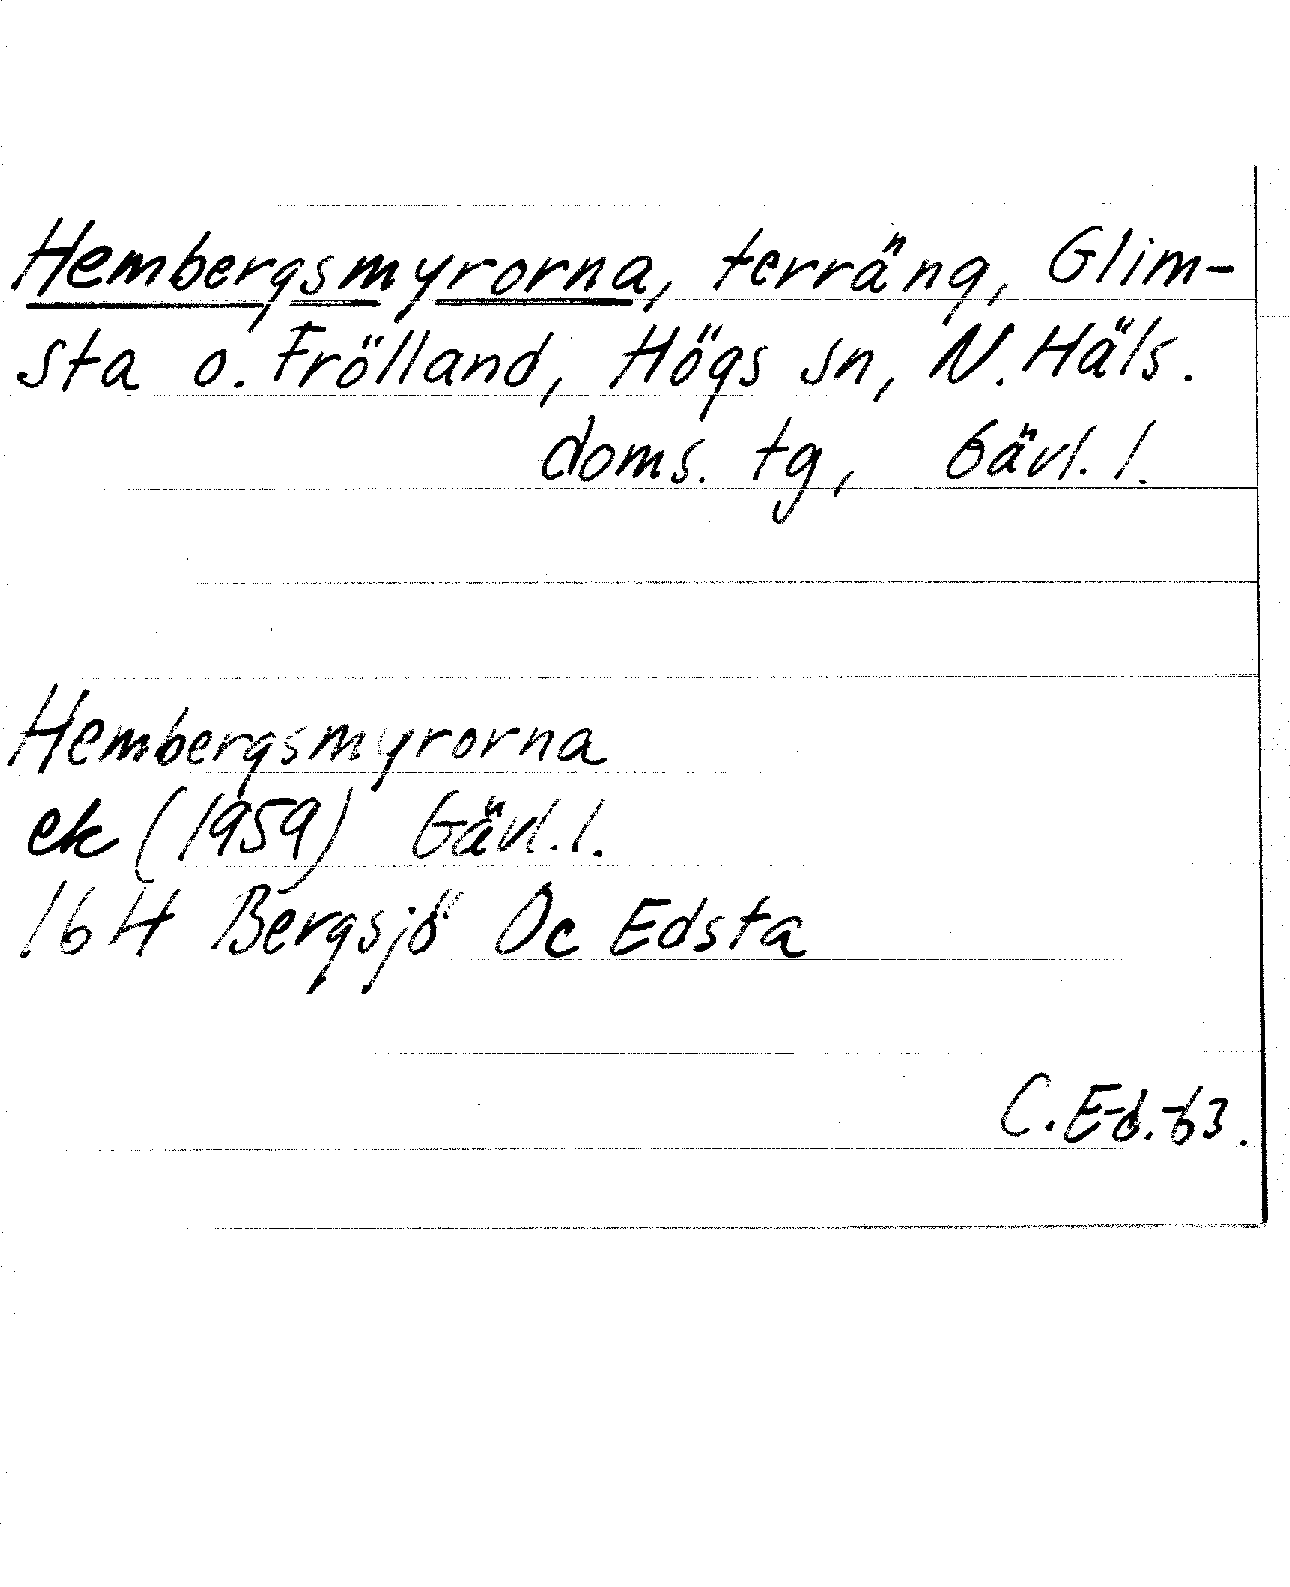 Hembergsmyrorna, terräng, Glim-
sta o. Frölland, Högs sn, N. Häls.
doms. tg, Gävl. l.
Hembergsmyrorna
ek (1959) Gävl. l.
16H Bergsjö Oc Edsta
C. E-d. -63.